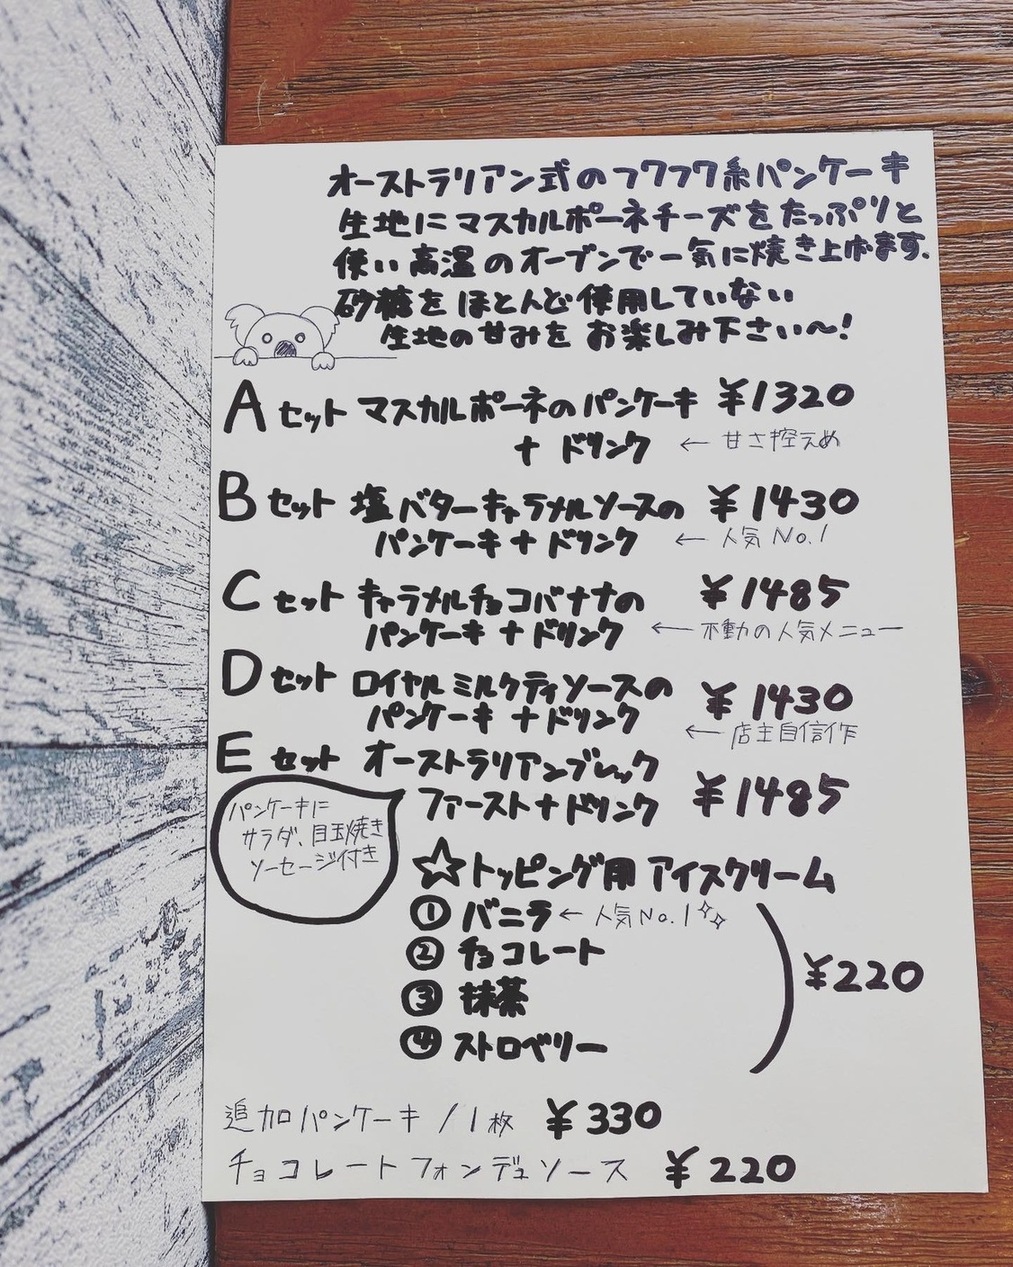 オーストラリアン式のフワフワ系パンケーキ
生地にマスカルポーネチーズをたっぷりと
使い高温のオーブンで一気に焼き上げます.
砂糖をほとんど使用していない
生地の甘みをお楽しみ下さい〜!
Aセット マスカルポーネのパンケーキ ¥1320
+ ドリンク ← 甘さ控えめ
Bセット 塩バターキャラメルソースの ¥1430
パンケーキ + ドリンク ← 人気No.1
Cセット キャラメルチョコバナナの ¥1485
パンケーキ + ドリンク ← 不動の人気メニュー
Dセット ロイヤルミルクティソースの ¥1430
パンケーキ + ドリンク ← 店主自信作
Eセット オーストラリアンブレック
ファースト+ドリンク ¥1485
パンケーキに
サラダ、目玉焼き
ソーセージ付き
☆トッピング用アイスクリーム
①バニラ ← 人気No.1
②チョコレート
③抹茶 ¥220
④ストロベリー
追加パンケーキ /1枚 ¥330
チョコレートフォンデュソース ¥220